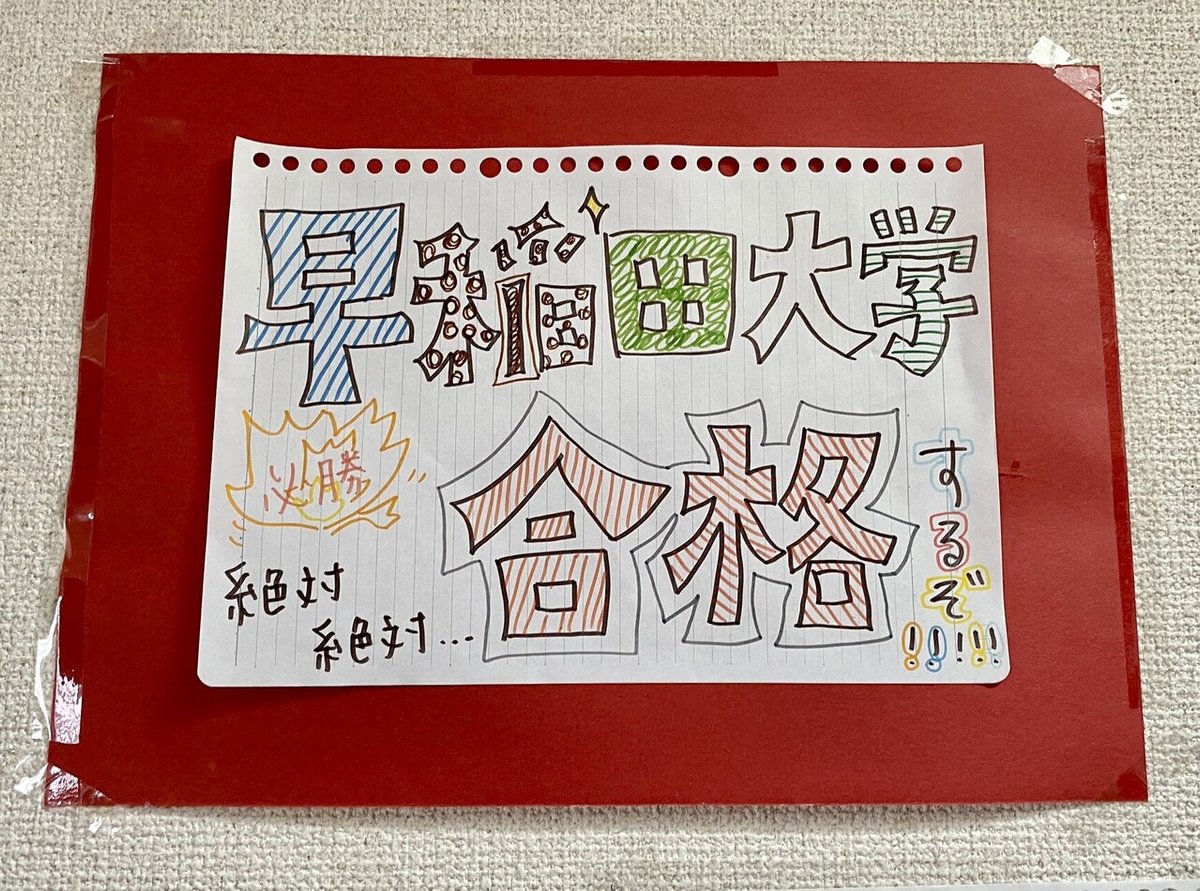 早稲田大学
必勝
絶対
絶対...
合格
するぞ
!!!!!